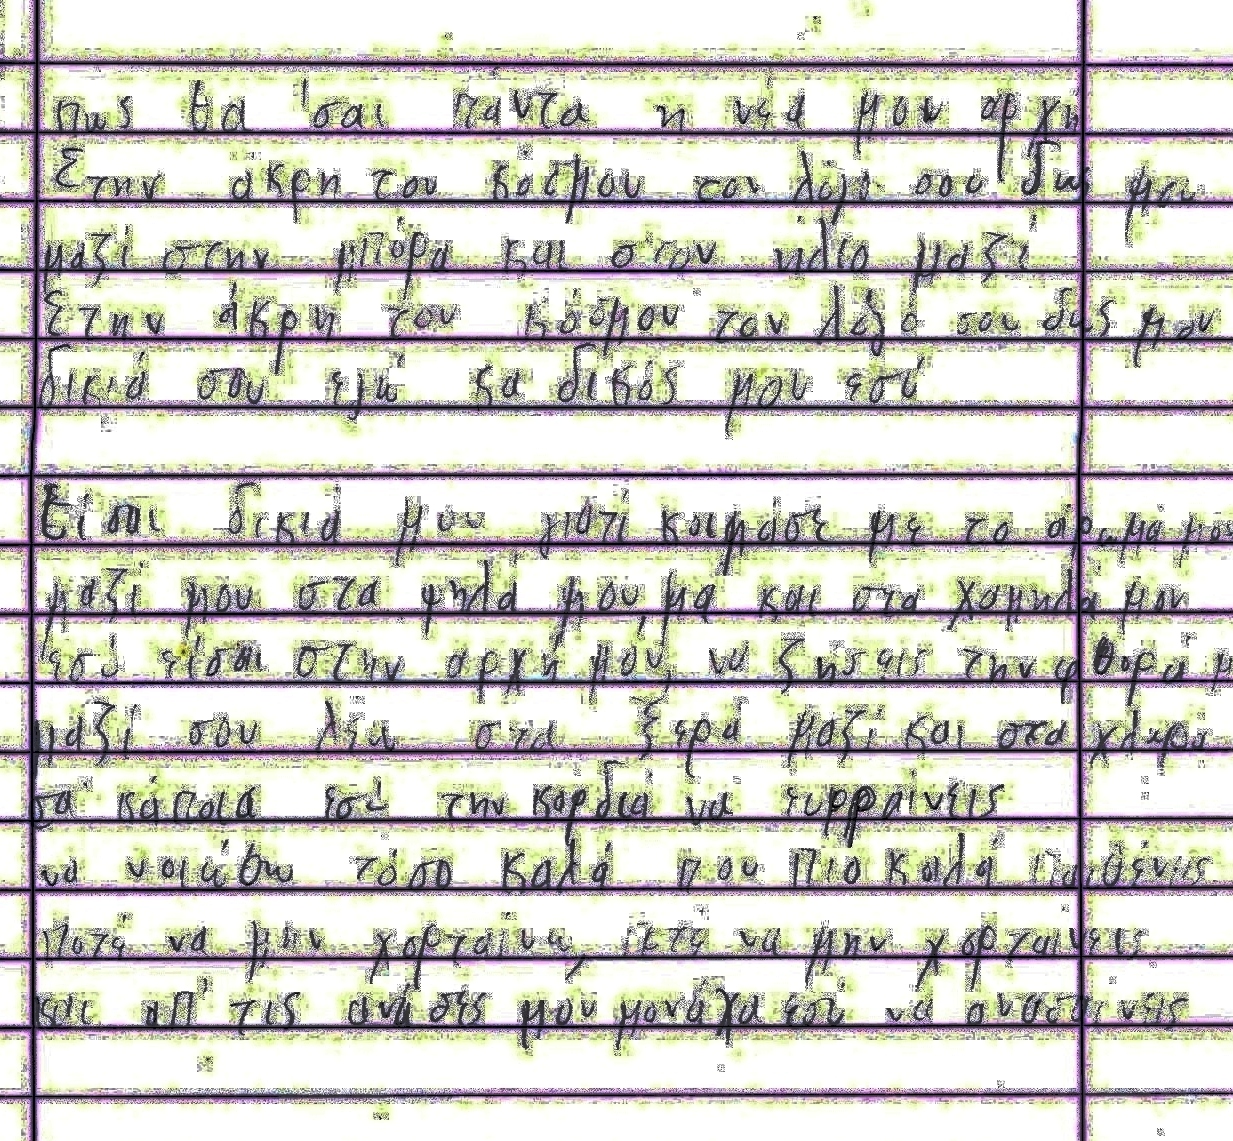 πως θα 'σαι πάντα η νέα μου αρχή
Στην άκρη του κόσμου τον λόγο σου δως μου
μαζί στην μπόρα και στον ήλιο μαζί
Στην άκρη του κόσμου τον λόγο σου δως μου
δικιά σου εγώ κα δικός μου εσύ
Είσαι δικιά μου γιατί κοιμάσε με το άρωμα μου
μαζί μου στα ψηλά μου μα και στα χαμηλά μου
εσύ είσαι στην αρχή μου να ζήσεις την φθορά
μαζί σου λέω στα ξερά μαζί και στα χλωρά
σα κάποια εσύ την καρδιά να ευφραίνεις
να νοιώθω τόσο καλά που πιο καλά
Ποτέ να μην χορταίνω, ποτέ να μην χορταίνεις
και απ' τις ανάσες μου μονάχα εσύ να ανασαίνεις